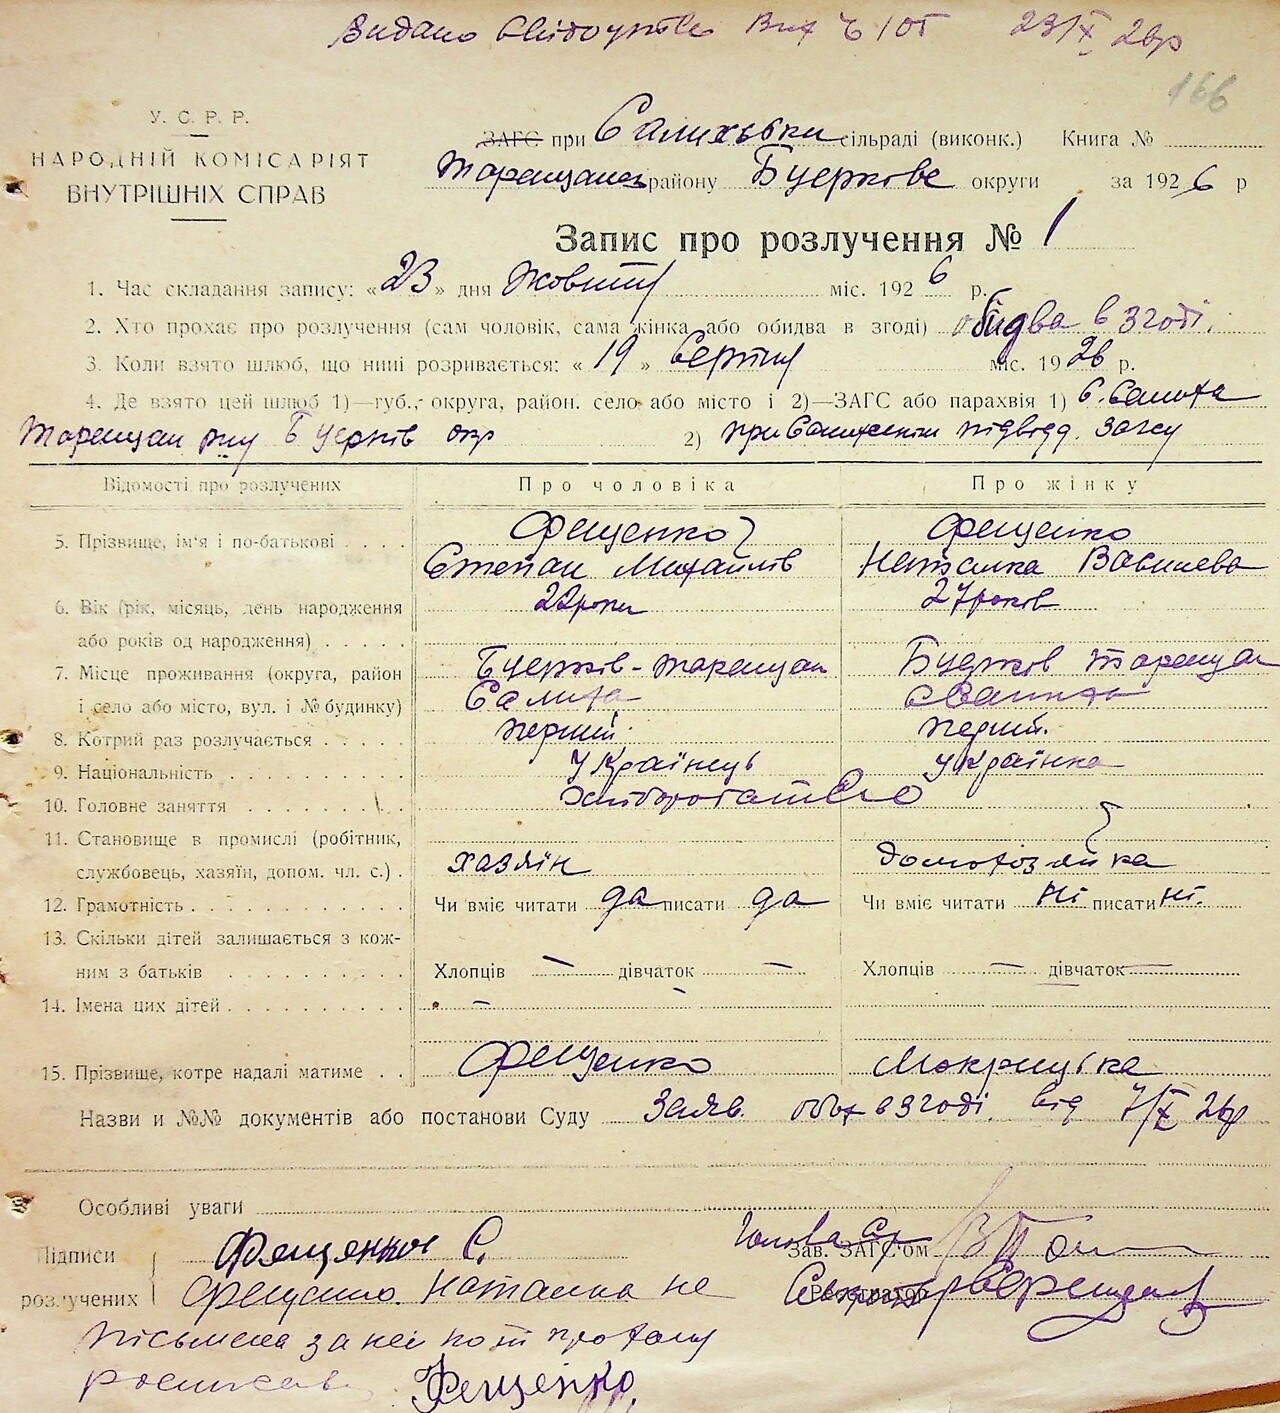 Видано Свідоцтво Вих 23/X 26р
166
У. С. Р. Р.
НАРОДНІЙ КОМІСАРІЯТ
ВНУТРІШНІХ СПРАВ
ЗАГС при сільраді (виконк.) Книга №
району округи за 1926 р
Запис про розлучення № 1
1. Час складання запису: «23» дня Жовтня міс. 1926 р.
2. Хто прохає про розлучення (сам чоловік, сама жінка або обидва в згоді) обидва в згоді.
3. Коли взято шлюб, що нині розривається: «19» Серпня міс. 1926 р.
4. Де взято цей шлюб 1)—губ., округа, район. село або місто і 2)—ЗАГС або парахвія 1) с.
Таращан р-ну окр 2) при підвідд. Загсу
Відомості про розлучених Про чоловіка Про жінку
5. Прізвище, ім'я і по-батькові . . . . Фещенко Фещенко
Степан Михайлів Наталка Василева
6. Вік (рік, місяць, день народження 22 роки 27 років
або років од народження) . . . . .
7. Місце проживання (округа, район Таращан Таращан
і село або місто, вул. і № будинку)
8. Котрий раз розлучається . . . . . перший перший.
9. Національність . . . . . . . . . Українець Українка
10. Головне заняття . . . . . . . . . Хліборобство
11. Становище в промислі (робітник,
службовець, хазяїн, допом. чл. с.) . хазяїн домохозяйка
12. Грамотність . . . . . . . . . . . Чи вміє читати да писати да Чи вміє читати ні писати ні.
13. Скільки дітей залишається з кож-
ним з батьків . . . . . . . . . . Хлопців — дівчаток — Хлопців — дівчаток —
14. Імена цих дітей . . . . . . . . . . — -
15. Прізвище, котре надалі матиме . . Фещенко Мокрицька
Назви и №№ документів або постанови Суду Заяв. обох в згоді. від 7/X 26р
Особливі уваги
Підписи Фещенко С. Голова
Зав. ЗАГС'ом
розлучених Фещенко Наталка не Секретар
Реєстратор
письмена за неї
Фещенко